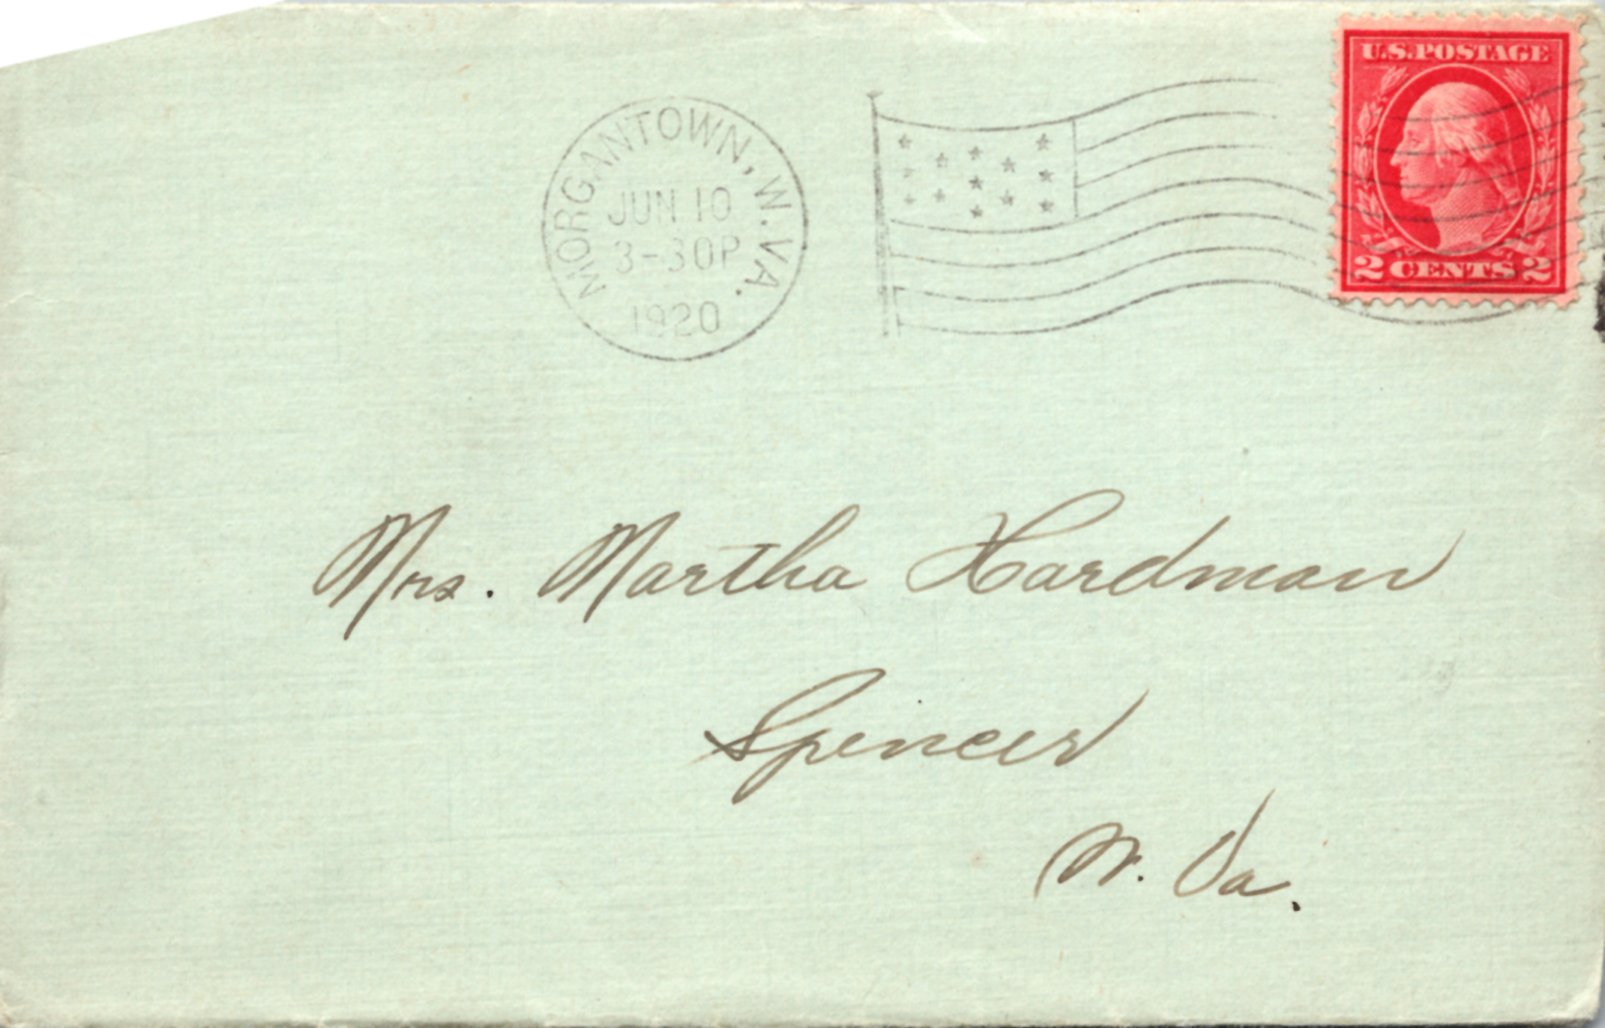 U.S. POSTAGE
2 CENTS 2
MORGANTOWN, W. VA.
JUN 10
3-30P
1920
Mrs. Martha Hardman
Spencer
W. Va.